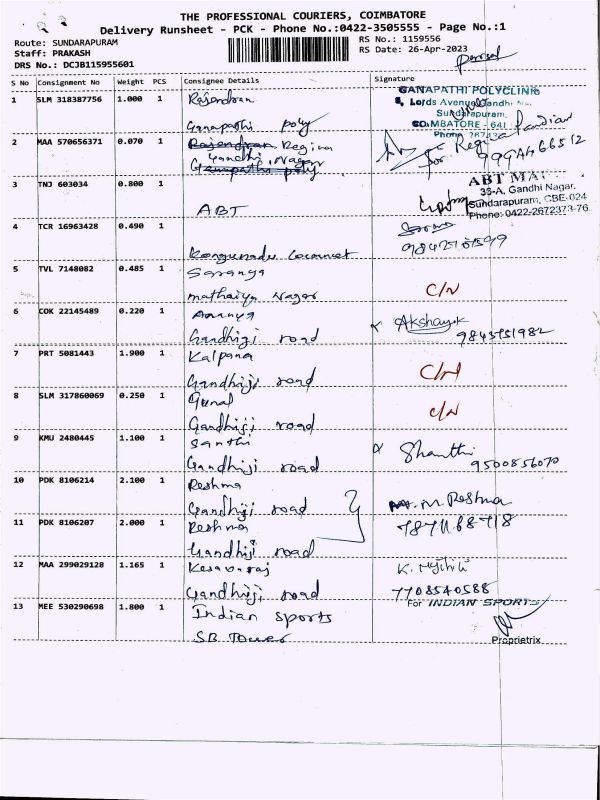 THE PROFESSIONAL COURIERS, COIMBATORE
Delivery Runsheet - PCK - Phone No.:0422-3505555 - Page No.:1
Route: SUNDARAPURAM
Staff: PRAKASH
DRS No.: DCJB115955601
RS No.: 1159556
RS Date: 26-Apr-2023
S No Consignment No Weight PCS Consignee Details Signature
1 SLM 318387756 1.000 1 Rajendran
Ganapathi poly
GANAPATHI POLYCLINIC
Sundarapuram,
COIMBATORE - 641
2 MAA 570656371 0.070 1 Rajendran Regina
Gandhi Nagar
Ganapathi poly
3 TNJ 603034 0.800 1
ABT
35-A, Gandhi Nagar,
Sundarapuram, CBE-024
Phone: 0422-2672373-76
4 TCR 16963428 0.490 1
5 TVL 7148082 0.485 1 Saranya
Nagar
C/N
6 COK 22145489 0.220 1
Gandhiji road
Akshaya
7 PRT 5081443 1.900 1 Kalpana
Gandhiji road
C/N
8 SLM 317860069 0.250 1
Gandhiji road
C/N
9 KMU 2480445 1.100 1 Santhi
Gandhiji road
Shanthi
9500856070
10 PDK 8106214 2.100 1 Reshma
Gandhiji road
M. Reshma
11 PDK 8106207 2.000 1 Reshma
Gandhiji road
12 MAA 299029128 1.165 1 Kesavaraj
Gandhiji road
7708540588
13 MEE 530290698 1.800 1 Indian sports
SB Tower
For INDIAN SPORTS
Proprietrix